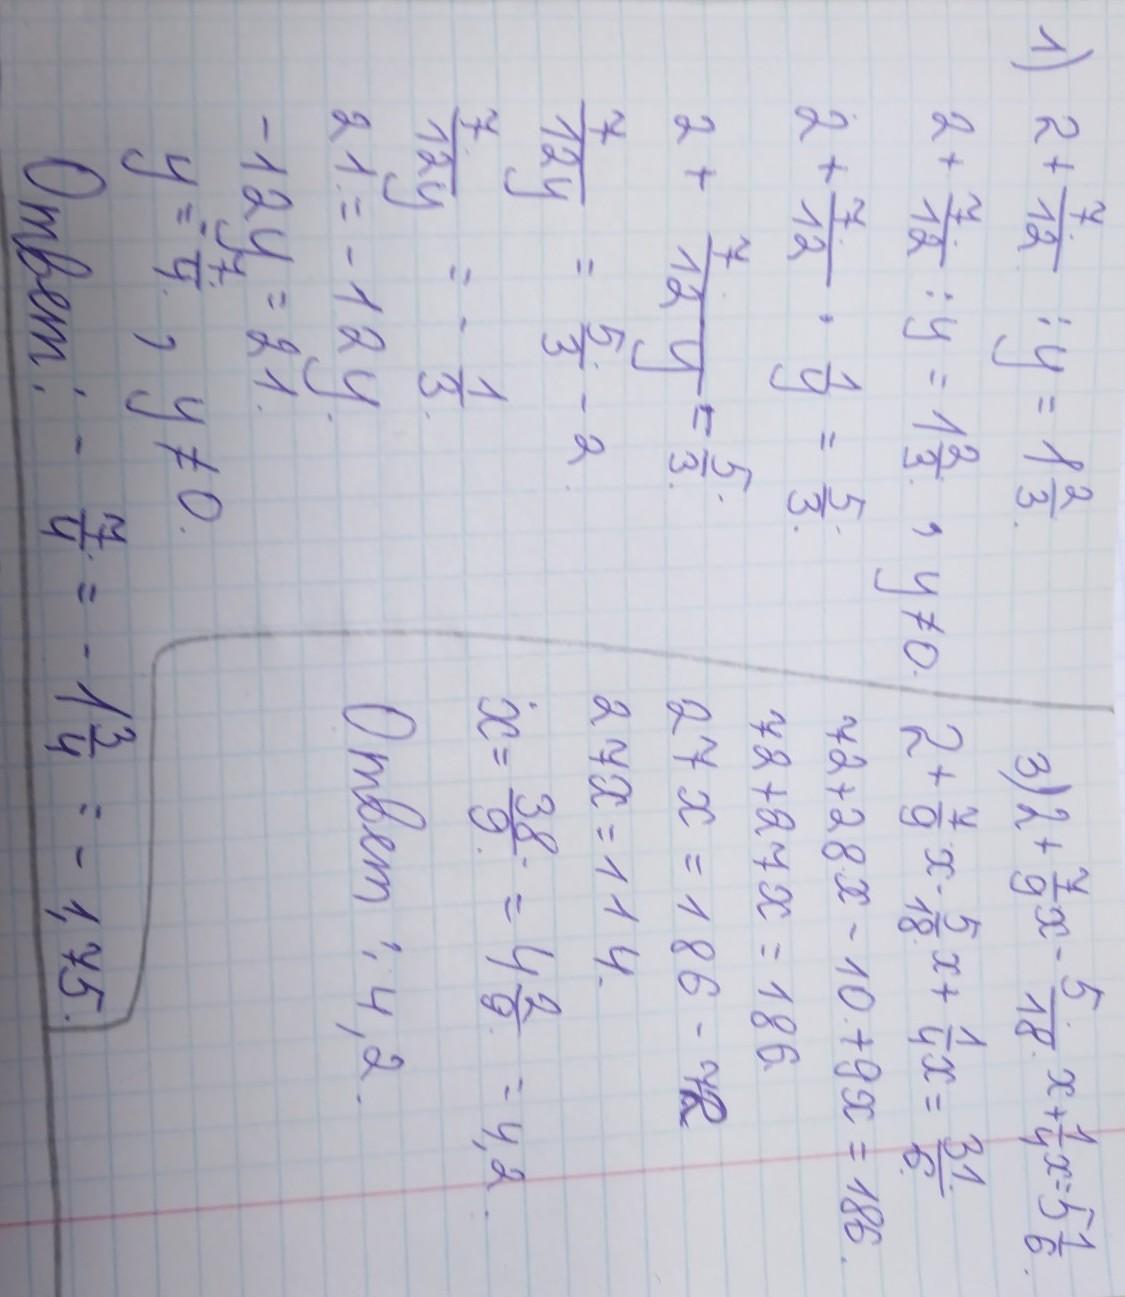 1) 2 + 7/12 : y = 1 2/3.
2 + 7/12 : y = 1 2/3, y ≠ 0.
2 + 7/12 · 1/y = 5/3.
2 + 7/12y = 5/3.
7/12y = 5/3 - 2.
7/12y = - 1/3.
21 = - 12y.
- 12y = 21.
y = - 7/4, y ≠ 0.
Ответ: - 7/4 = - 1 3/4 = - 1,75.
3) 2 + 7/9 x - 5/18 x + 1/4 x = 5 1/6.
2 + 7/9 x - 5/18 x + 1/4 x = 31/6.
72 + 28x - 10 + 9x = 186.
72 + 27x = 186
27x = 186 - 72
27x = 114.
x = 38/9 = 4 2/9 = 4,2.
Ответ: 4,2.